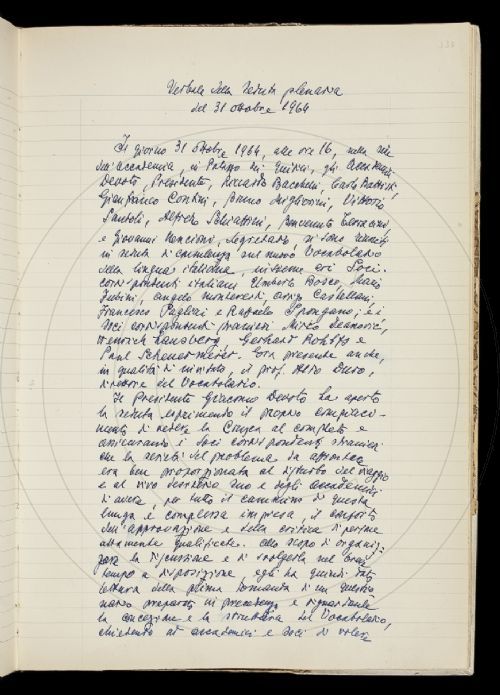 Verbale della seduta plenaria
del 31 ottobre 1964
Il giorno 31 ottobre 1964, alle ore 16, nella sede
dell'Accademia, in Palazzo dei Giudici, gli Accademici
Devoto, Presidente, Riccardo Bacchelli, Carlo Battisti,
Gianfranco Contini, Bruno Migliorini, Vittorio
Santoli, Alfredo Schiaffini, Benvenuto Terracini
e Giovanni Nencioni, segretario, si sono riuniti
in seduta di consulenza sul nuovo Vocabolario
della lingua italiana, insieme coi Soci
corrispondenti italiani Umberto Bosco, Mario
Fubini, Angelo Monteverdi, Arrigo Castellani,
Francesco Pagliai e Raffaele Spongano; e i
Soci corrispondenti stranieri Mirko Deanović,
Heinrich Lausberg, Gerhard Rohlfs e
Paul Scheuermeier. Era presente anche,
in qualità di invitato, il prof. Aldo Duro,
direttore del Vocabolario.
Il Presidente Giacomo Devoto ha aperto
la seduta esprimendo il proprio compiaci-
mento di vedere la Crusca al completo e
assicurando i Soci corrispondenti stranieri
che la serietà del problema da affrontare
era ben proporzionata al disturbo del viaggio
e al vivo desiderio suo e degli accademici
di avere, per tutto il cammino di questa
lunga e complessa impresa, il conforto
dell'approvazione e della critica di persone
altamente qualificate. Allo scopo di organiz-
zare la discussione e di svolgerla nel breve
tempo a disposizione egli ha quindi dato
lettura della prima domanda di un questio-
nario preparato in precedenza e riguardante
la concezione e la struttura del Vocabolario,
chiedendo ad accademici e soci di voler